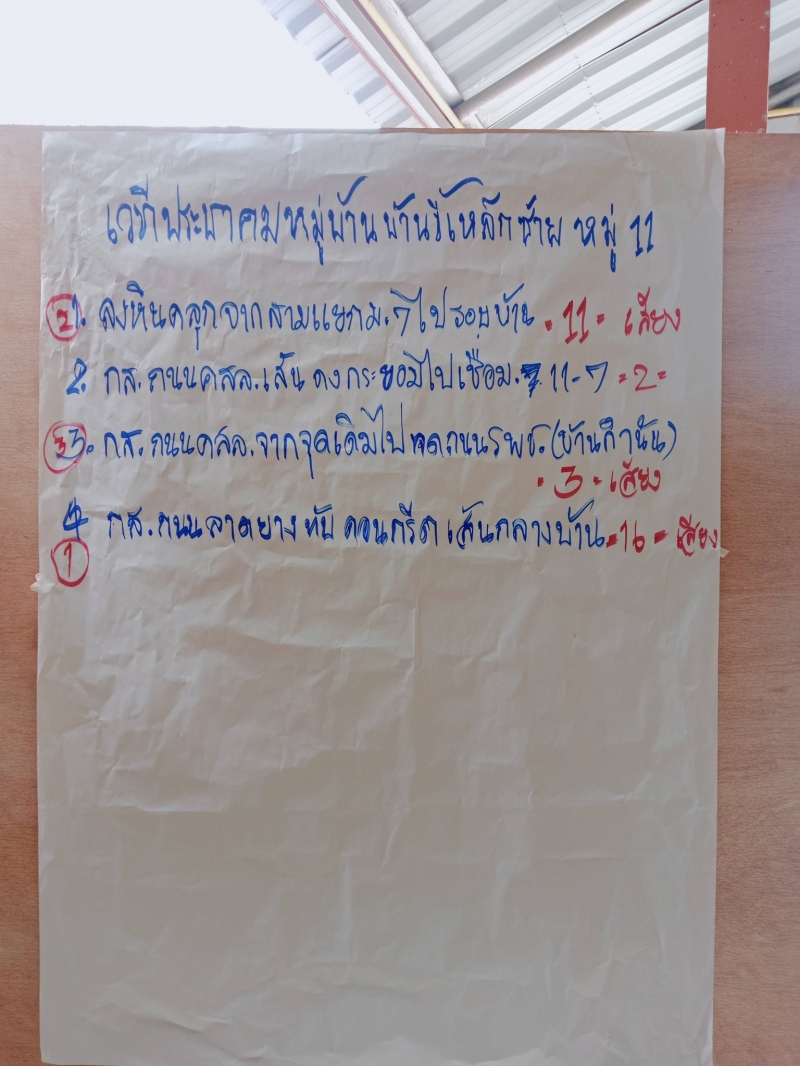 เวทีประชาคมหมู่บ้าน บ้านขี้เหล็กซ้าย หมู่ 11
2 1. ลงหินคลุกจากสามแยก ม.7 ไปรอบบ้าน = 11 = เสียง
2. กส.ถนน คสล. เส้น ดงกระยอมีไปเชื่อม ม. 11-7 = 2 =
3 3. กส.ถนน คสล. จากจุดเดิมไป ถนน รพช. (บ้านกำนัน)
= 3 = เสียง
4 กส.ถนนลาดยางทับคอนกรีต เส้นกลางบ้าน = 16 = เสียง
1